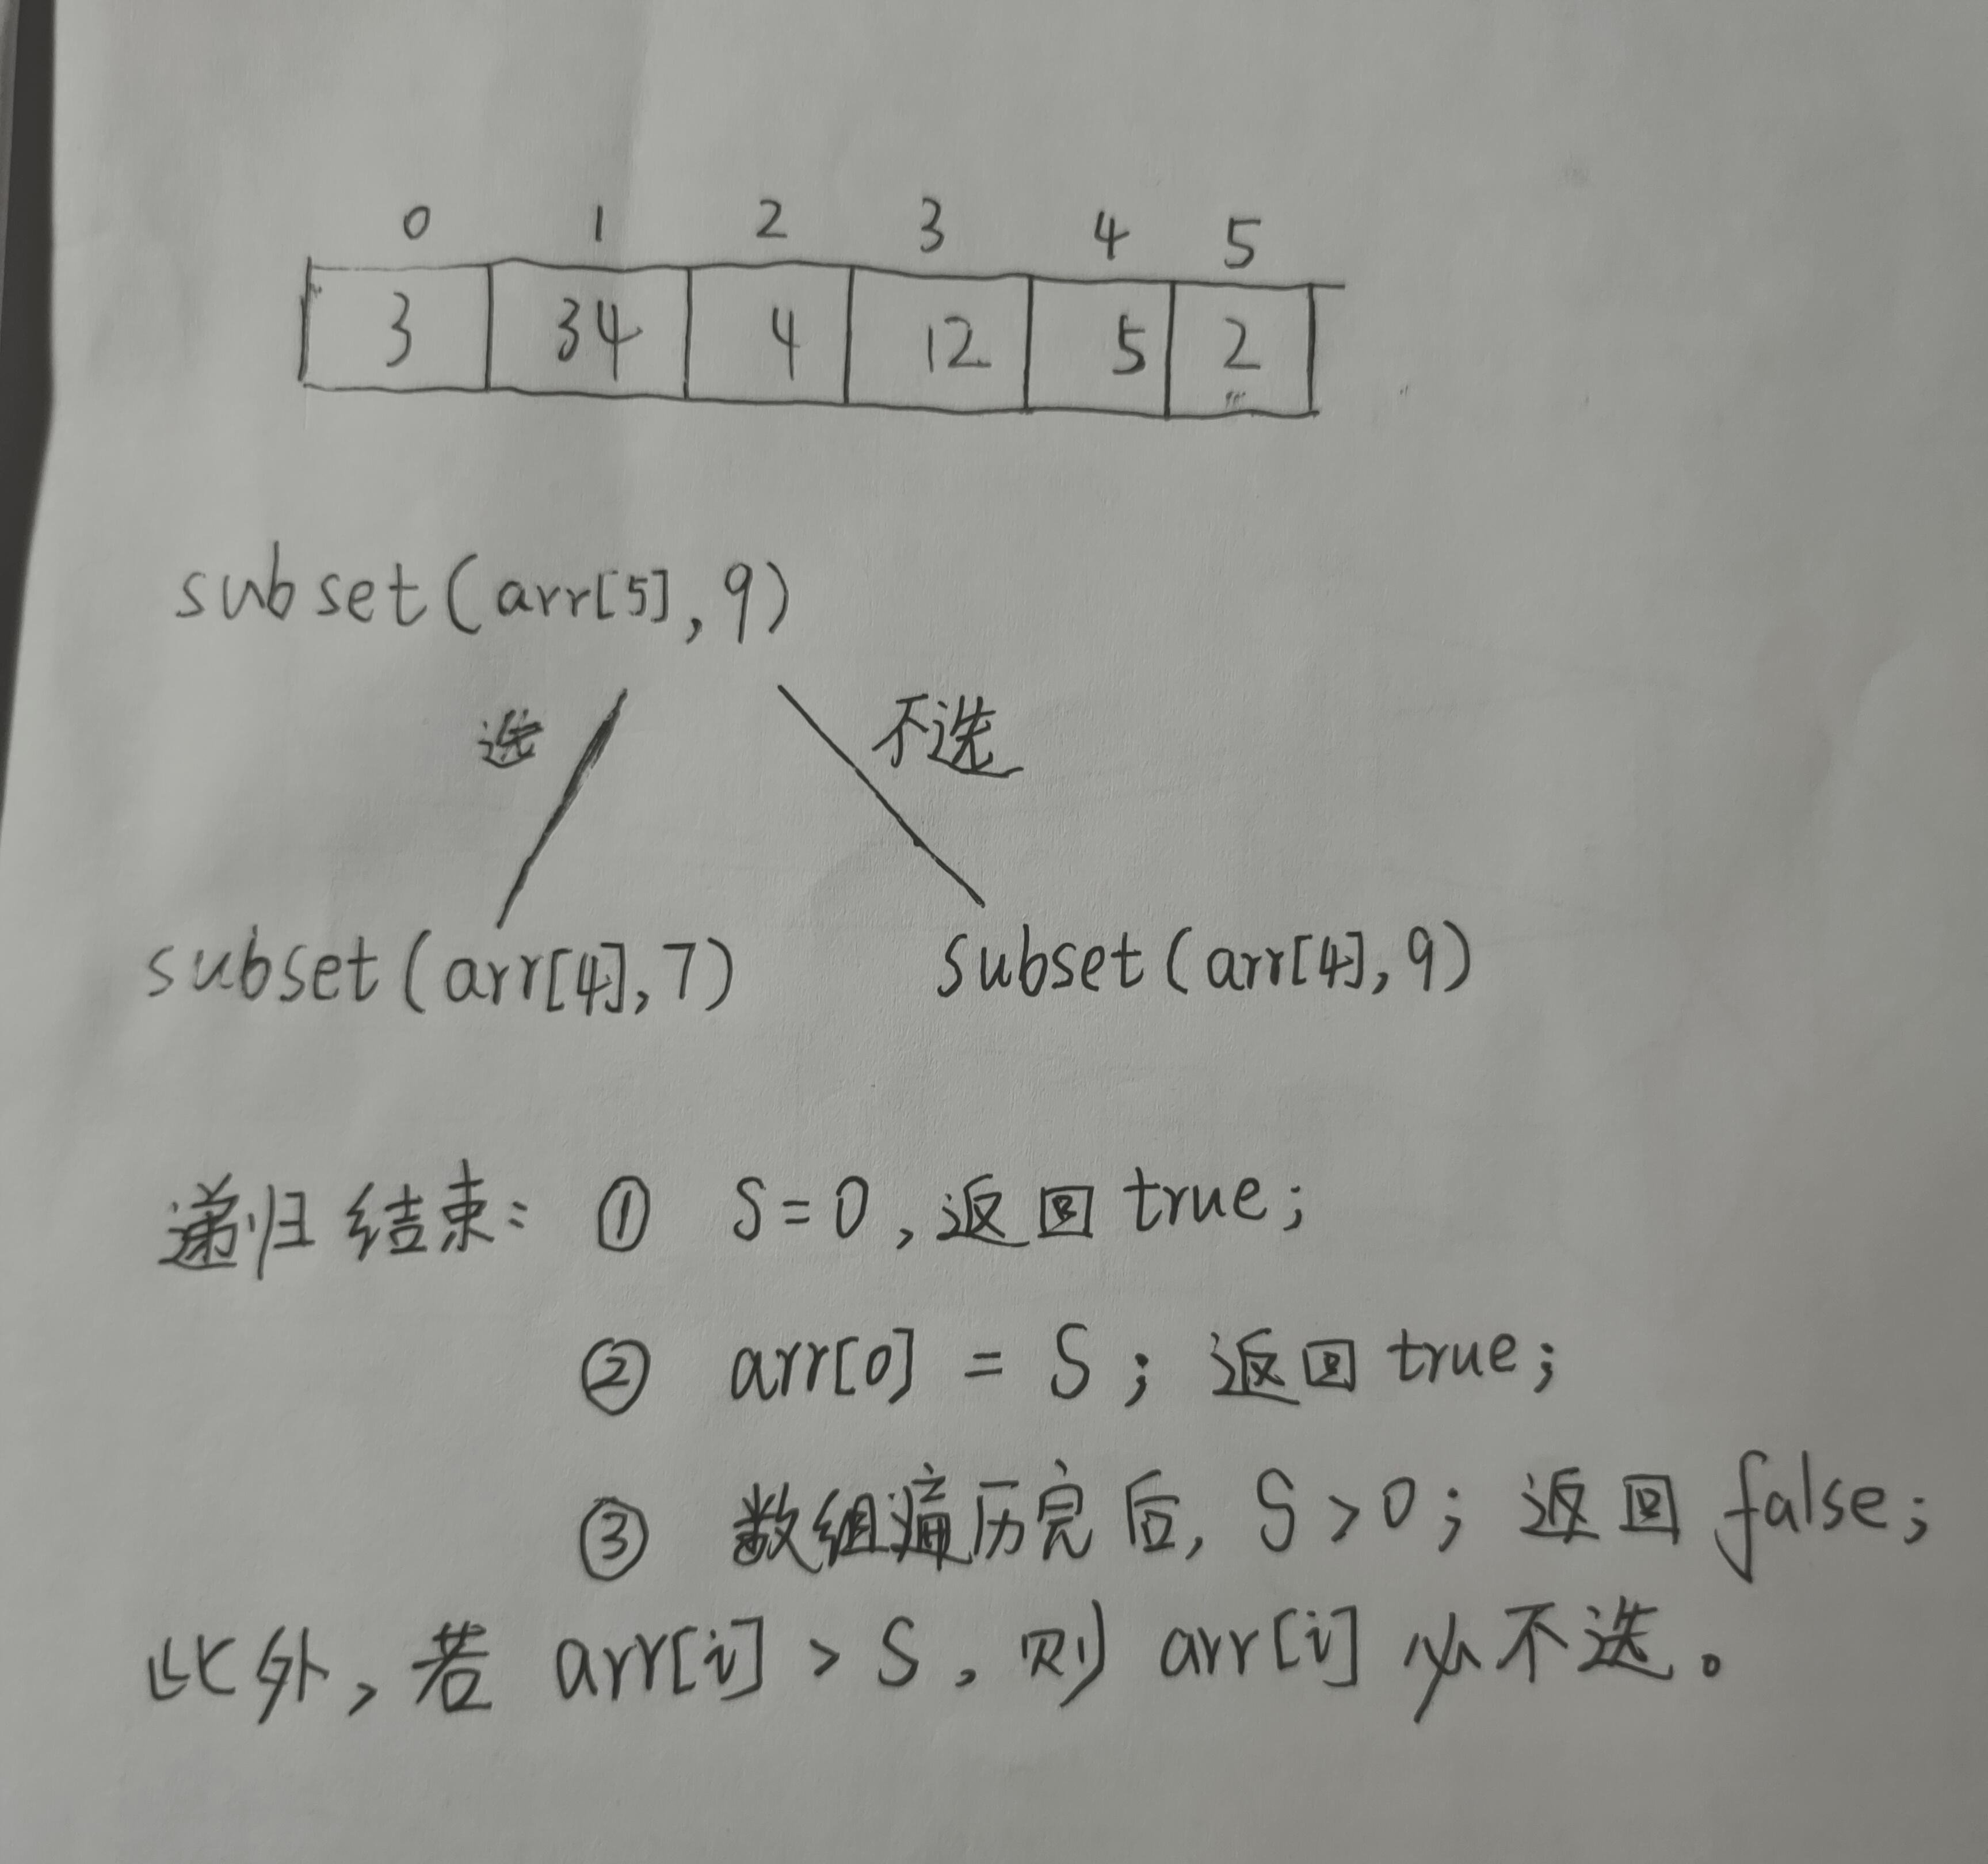 0 1 2 3 4 5
3 34 4 12 5 2
subset(arr[5],9)
选 不选
subset(arr[4],7) subset(arr[4],9)
递归结束: ① S=0,返回true;
② arr[0] = S;返回true;
③ 数组遍历完后, S>0;返回false;
此外,若 arr[i] > S,则 arr[i] 必不选。